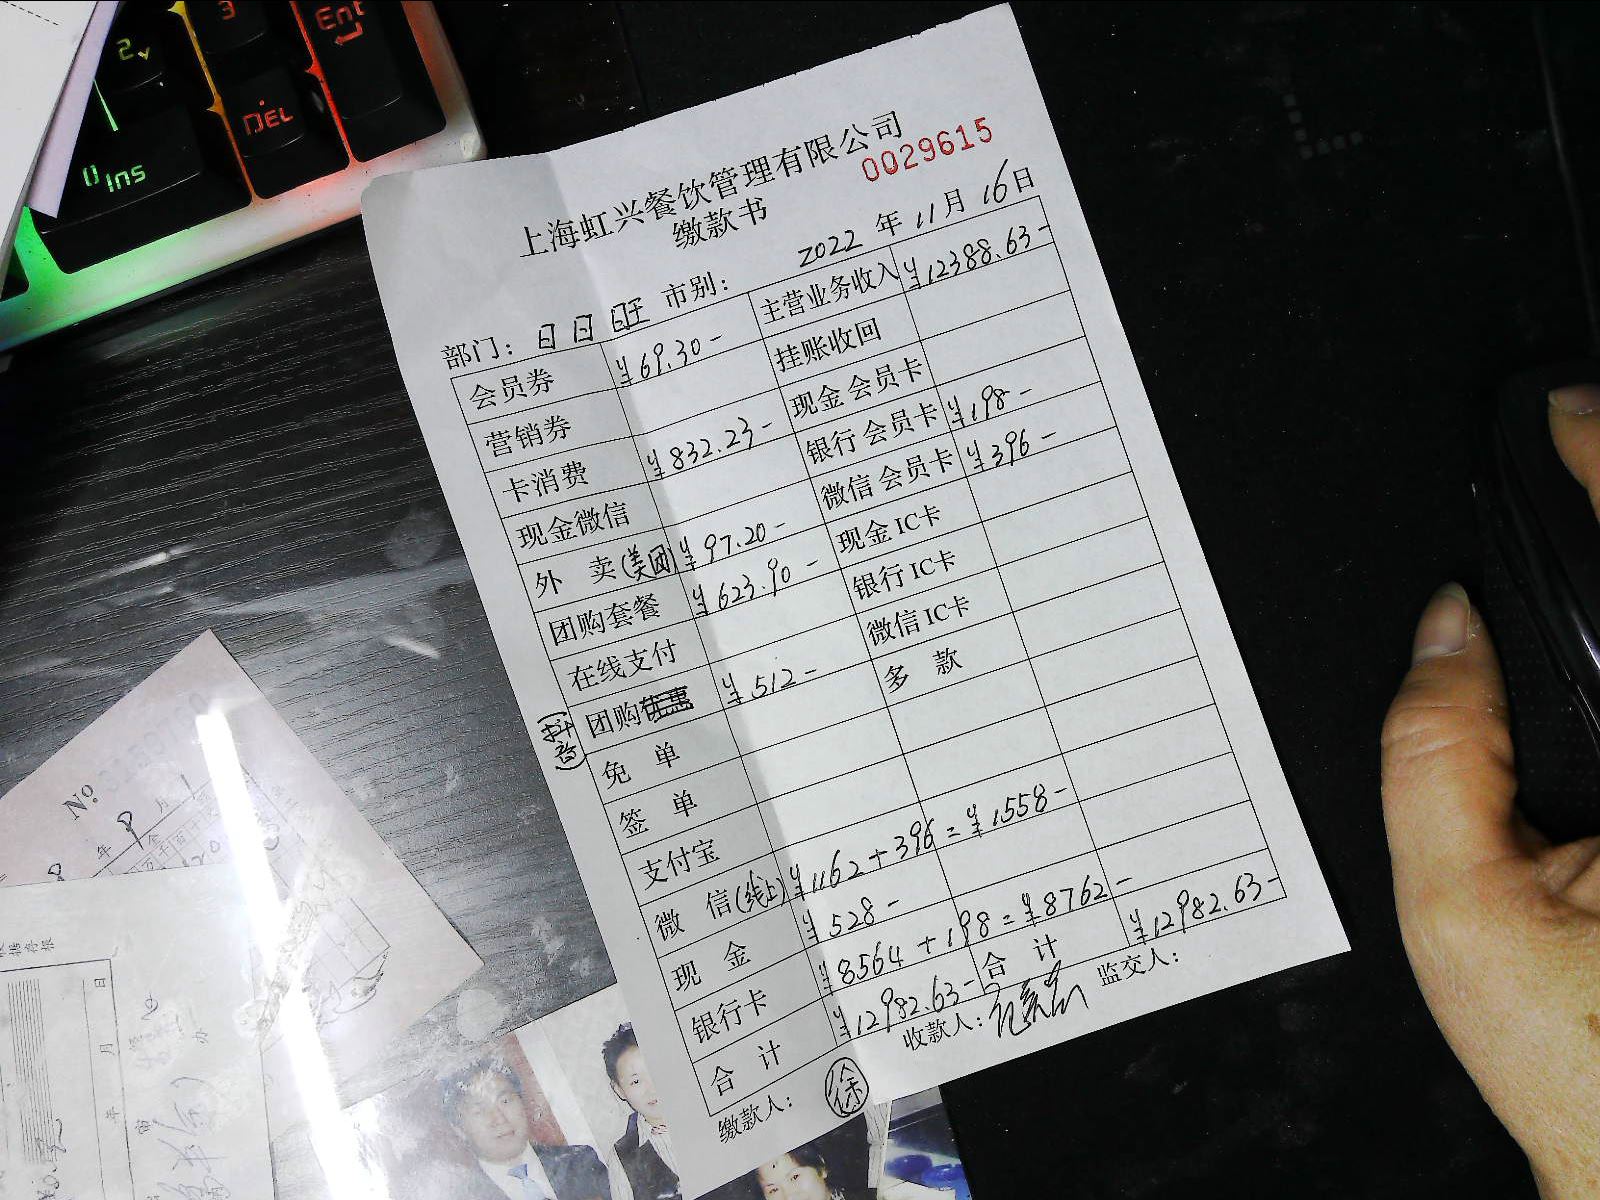 2
3
Ent
DEL
0 Ins
上海虹兴餐饮管理有限公司
缴款书
0029615
2022 年 11 月 16 日
部门： 日日旺 市别：
会员券 ¥69.30- 主营业务收入 ¥12388.63-
营销券 挂账收回
卡消费 ¥832.23- 现金会员卡
现金微信 银行会员卡 ¥198-
外 卖(美团) ¥97.20- 微信会员卡 ¥396-
团购套餐 ¥623.90- 现金IC卡
在线支付 银行IC卡
(抖音) 团购 ¥512- 微信IC卡
免 单 多 款
签 单
支付宝
微 信(线上) ¥1162+396=¥1558-
现 金 ¥528-
银行卡 ¥8564+198=¥8762-
合 计 ¥12982.63- 合 计 ¥12982.63-
缴款人： 徐 收款人： 监交人：
No
年 月
年 月 日